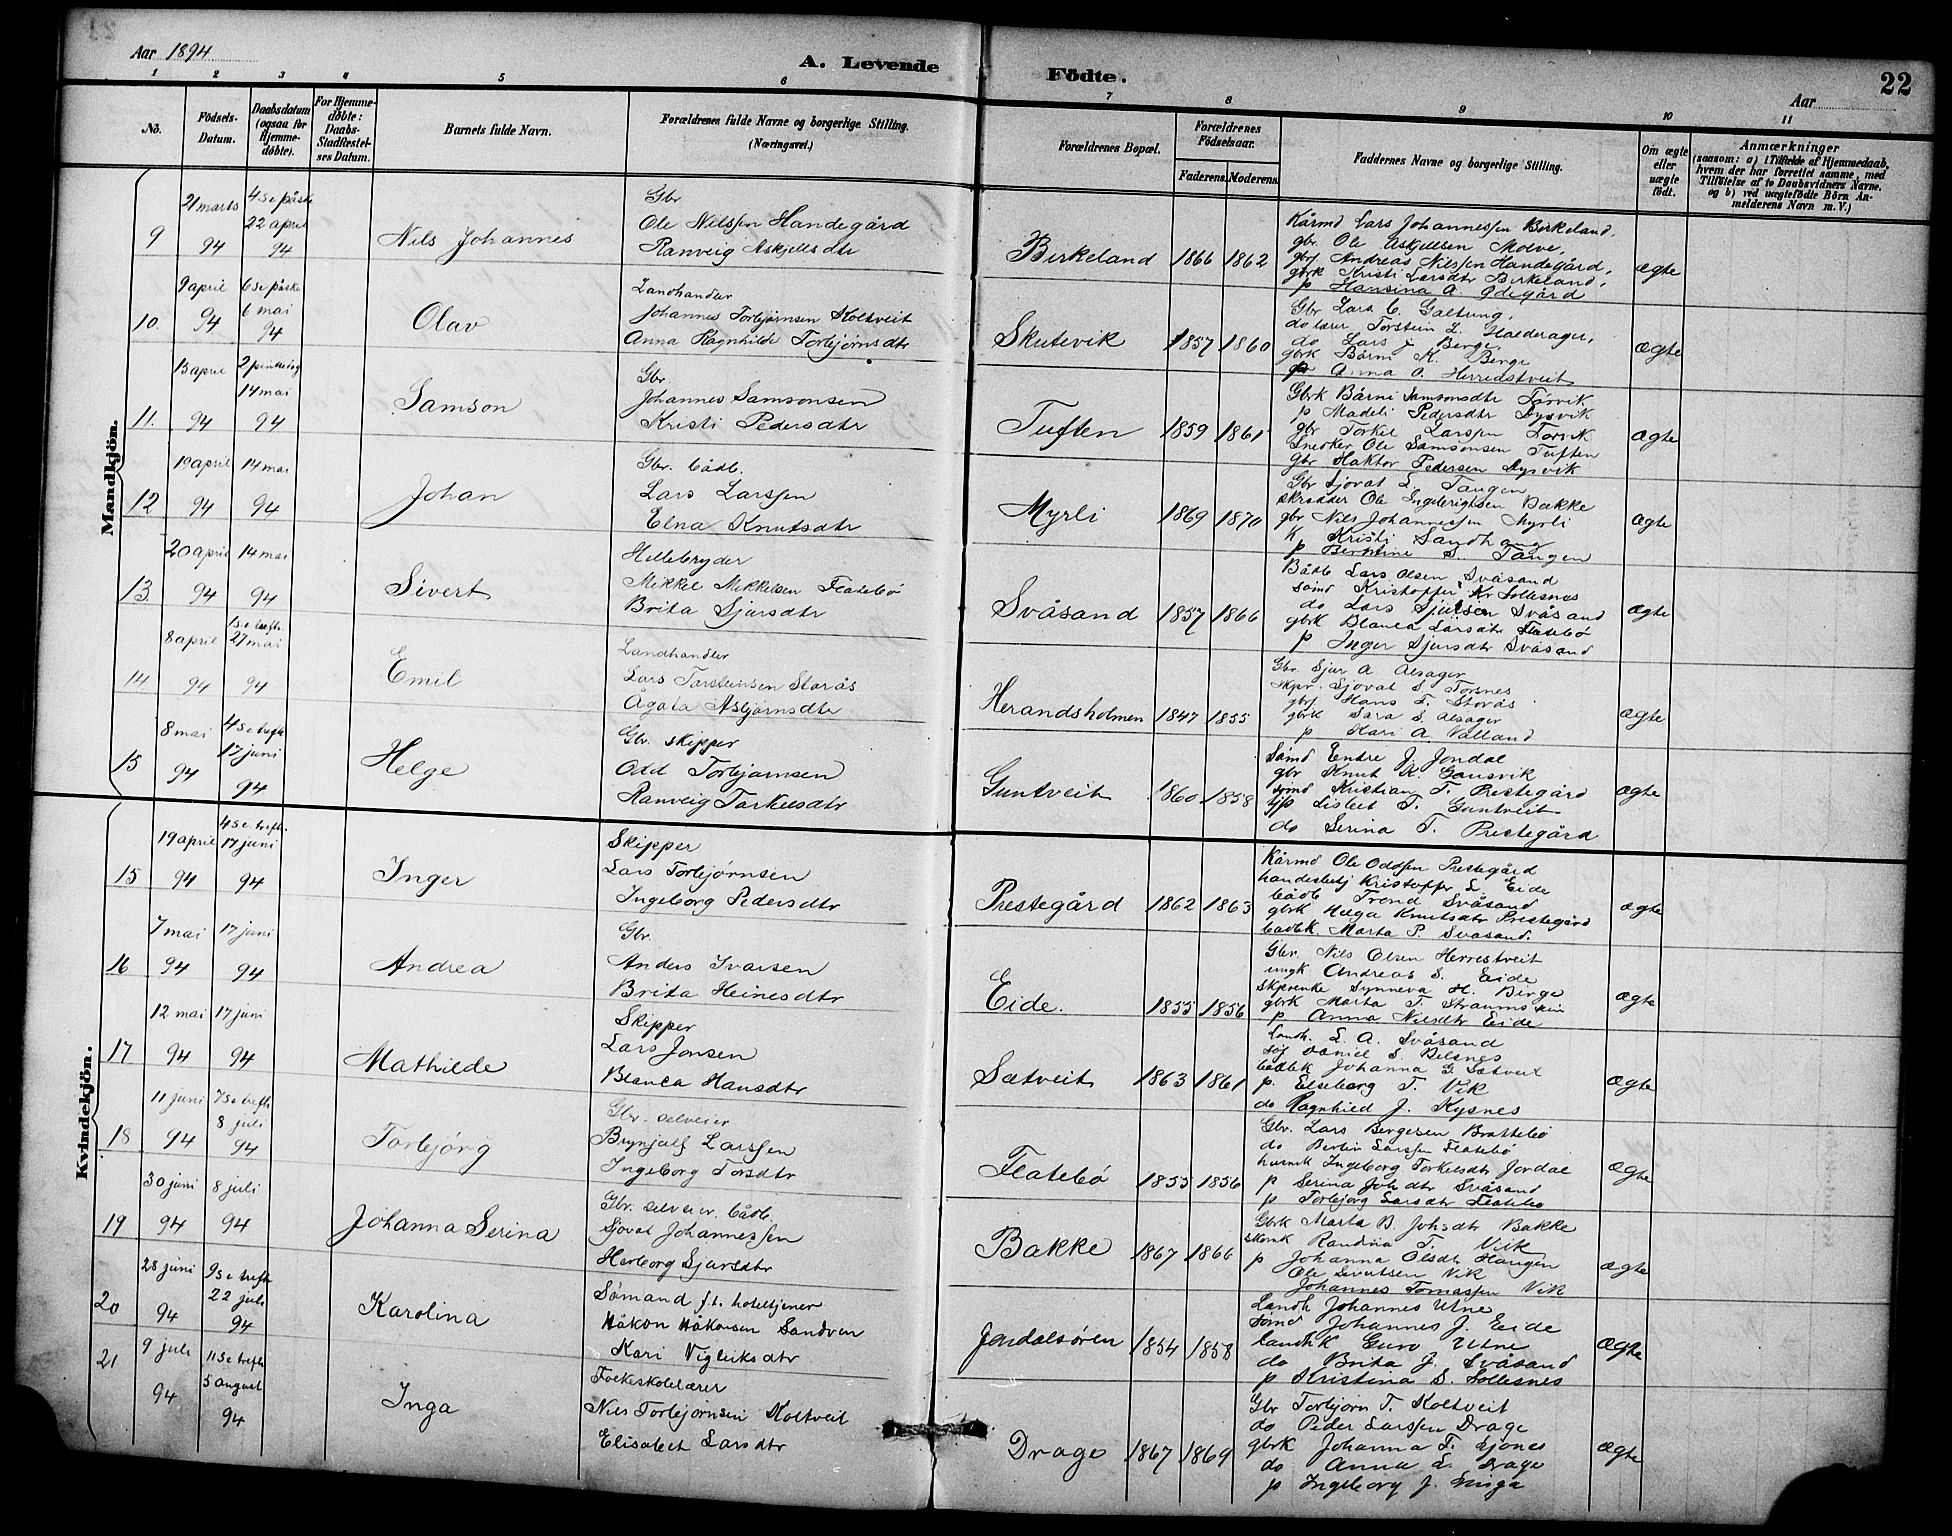 Aar 1894
A. Levende Födte.
22
Aar
1 2 3 4 5 6 7 8 9 10 11
No.
Födsels-Datum.
Daabsdatum (ogsaa for Hjemme-døbte).
For Hjemme-døbte: Daabs-Stadfæstel-ses Datum.
Barnets fulde Navn.
Forældrenes fulde Navne og borgerlige Stilling. (Næringsvei.)
Forældrenes Bopæl.
Forældrenes Födselsaar.
Faderens. Moderens.
Faddernes Navne og borgerlige Stilling.
Om ægte eller uægte födt.
Anmærkninger
(saasom: a) i Tilfælde af Hjemmedaab, hvem der har forrettet samme, med Tilföielse af to Daabsvidners Navne, og b) ved uægtefödte Börn An-melderens Navn m. V.)
Mandkjön.
9
21 marts 94
4 s e påske 22 april 94
Nils Johannes
Gbr
Ole Nilssen Handegård
Ranveig Askjellsdtr
Birkeland 1866 1862
Kårmd Lars Johannessen Birkeland,
gbr. Ole Askjellsen Molve,
gbs Andreas Nilssen Handegård,
gbrk Kristi Larsdtr Birkeland,
p Hansina A. Ødegård
ægte
10.
9 april 94
6 s e påske 6 mai 94
Olav
Landhandler
Johannes Torbjørnsen Holtveit
Anna Ragnhilde Torbjørnsdtr
Skutevik 1857 1860
Gbr Lars C. Galtung,
do lærer Torstein L. Halderager,
do Lars J Berge,
gbrk Bårni K. Berge
p Anna O. Herrestveit
ægte
11.
15 april 94
2 pintsedag 14 mai 94
Samson
Gbr.
Johannes Samsonsen
Kristi Pedersdtr
Tuften 1859 1861
Gbrk Bårni Samsonsdtr Torvik
p Madeli Pedersdtr Dysvik
gbr Torkel Larssen Torvik
Snedker Ole Samsonsen Tuften
gbr Haktor Pedersen Dysvik
ægte
12
19 april 94
14 mai 94
Johan
Gbr. bådb.
Lars Larssen
Elna Knutsdtr
Myrli 1869 1870
Gbr Sjovat L. Tangen
skrædder Ole Ingebrigtsen Bakke
gbr Nils Johannessen Myrli
k Kristi Sandhaug
p Berntine S. Tangen
ægte
13
20 april 94
14 mai 94
Sivert
Hellebryder
Mikkel Mikkelsen Flatebø
Brita Sjursdtr
Svåsand 1857 1866
Bådb Lars Olsen Svåsand
sømd Kristoffer Kr Sollesnes
do Lars Sjursen Svåsand
gbrk Blanca Larsdtr Flatebø
p Inger Sjursdtr Svåsand
ægte
14
8 april 94
1 s e trefh. 27 mai 94
Emil
Landhandler
Lars Torsteinsen Storås
Ågåta Asbjørnsdtr
Herandsholmen 1847 1855
Gbr. Sjur A Alsager
skpr. Sjovat S Torsnes
gbs Hans T. Storås
gbrk Sara S. Alsager
p Kari A. Valland
ægte
15
8 mai 94
4 s e trefh 17 juni 94
Helge
Gbr. skipper
Odd Torbjørnsen
Ranveig Torkelsdtr
Guntveit 1860 1858
Sømd Endre J. Jondal
gbr Knut K. Gausvik
sømd Kristian T. Prestegård
tjp Lisbet T. Guntveit
do Serina T. Prestegård
ægte
Kvindekjön.
15
19 april 94
4 s e trefh. 17 juni 94
Inger
Skipper
Lars Torbjørnsen
Ingeborg Pedersdtr
Prestegård 1862 1863
Kårmd Ole Oddsen Prestegård
handelsbetj Kristoffer L. Eide
bådb Trond Svåsand
gbrk Helga Knutsdtr Prestegård
bådbk. Marta P. Svåsand.
ægte
16
7 mai 94
17 juni 94
Andrea
Gbr.
Anders Ivarsen
Brita Heinesdtr
Eide. 1855 1856
Gbr. Nils Olsen Herrestveit
ungk Andreas S. Eide
skprenke Synneva H. Berge
gbrk Marta T. Strømskin
p Anna Nilsdtr Eide
ægte
17
12 mai 94
17 juni 94
Mathilde
Skipper
Lars Jonsen
Blanca Hansdtr
Sætveit 1863 1861
Landh. L. A. Svåsand
Daniel S. Belsnes
bådbk Johanna G. Sætveit
p. Elseborg T. Vik
do Ragnhild J. Kysnes
ægte
18
11 juni 94
7 s e trefh 8 juli 94
Torbjörg
Gbr. selveier
Brynjulf Larssen
Ingeborg Torsdtr
Flatebö 1855 1856
Gbr. Lars Bergesen Brattebö
do Bertin Larssen Flatebö
husmk Ingeborg Torkelsdtr Jordal
p Serina Johsdtr Svåsand
p Torbjörg Larsdtr Flatebö
ægte
19
30 juni 94
8 juli 94
Johanna Serina
Gbr. selveier. bådb.
Sjovat Johannessen
Herborg Sjursdtr
Bakke 1867 1866
Gbrk Marta B. Johsdtr Bakke
skomk Randina T. Vik
p Johanna Olsdtr Haugen
Ole Sivertsen Vik
Johannes Tomassen Vik
ægte
20
28 juni 94
9 s e trefh 22 juli 94
Karolina
Sømand f.t. hoteltjener
Håkon Håkonsen Sandven
Kari Vigleiksdtr
Jondalsören 1854 1858
Landh Johannes Utne
sømd Johannes J. Eide
landhk Guro Utne
do Brita J. Svåsand
p Kristina S. Sollesnes
ægte
21
9 juli 94
11 s e trefh 5 august 94
Inga
Folkeskolelærer
Nils Torbjørnsen Holtveit
Elisabet Larsdtr
Drage 1867 1869
Gbr Torbjørn T. Holtveit
do Peder Larssen Drage
gbrk Johanna T. Sjones
do Anna L. Drage
p Ingeborg J.
ægte